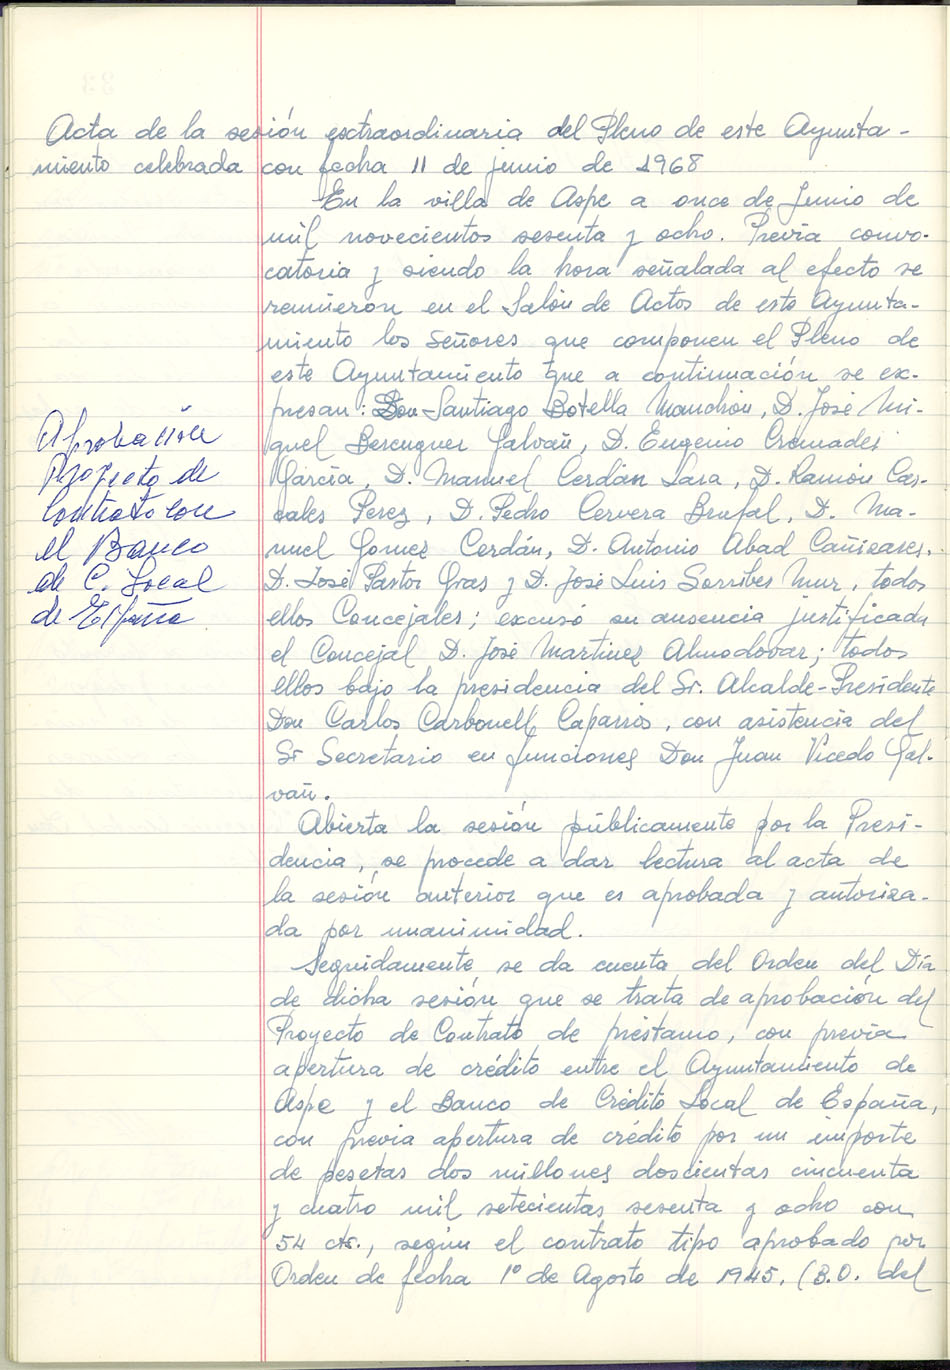 Acta de la sesión extraordinaria del Pleno de este Ayunta-
miento celebrada con fecha 11 de junio de 1968
En la villa de Aspe a once de Junio de
mil novecientos sesenta y ocho. Previa convo-
catoria y siendo la hora señalada al efecto se
reunieron en el Salón de Actos de este Ayunta-
miento los Señores que componen el Pleno de
este Ayuntamiento que a continuación se ex-
presan: Don Santiago Botella Manchón, D. José Mi-
guel Berenguer Galvañ, D. Eugenio Cremades
García, D. Manuel Cerdán Lara, D. Ramón Cas-
cales Perez, D. Pedro Cervera Brufal, D. Ma-
nuel Gomez Cerdán, D. Antonio Abad Cañizares,
D. José Pastor Gras y D. José Luis Sorribes Mur, todos
ellos Concejales; excusó su ausencia justificada
el Concejal D. José Martinez Almodovar; todos
ellos bajo la presidencia del Sr. Alcalde-Presidente
Don Carlos Carbonell Caparrós, con asistencia del
Sr Secretario en funciones Don Juan Vicedo Gal-
vañ.
Aprobación
Proyecto de
Contrato con
el Banco
de C. Local
de España
Abierta la sesión públicamente por la Presi-
dencia, se procede a dar lectura al acta de
la sesión anterior que es aprobada y autoriza-
da por unanimidad.
Seguidamente se da cuenta del Orden del Día
de dicha sesión que se trata de aprobación del
Proyecto de Contrato de préstamo, con previa
apertura de crédito entre el Ayuntamiento de
Aspe y el Banco de Crédito Local de España,
con previa apertura de crédito por un importe
de pesetas dos millones doscientas cincuenta
y cuatro mil setecientas sesenta y ocho con
54 cts., según el contrato tipo aprobado por
Orden de fecha 1º de Agosto de 1945. (B.O. del